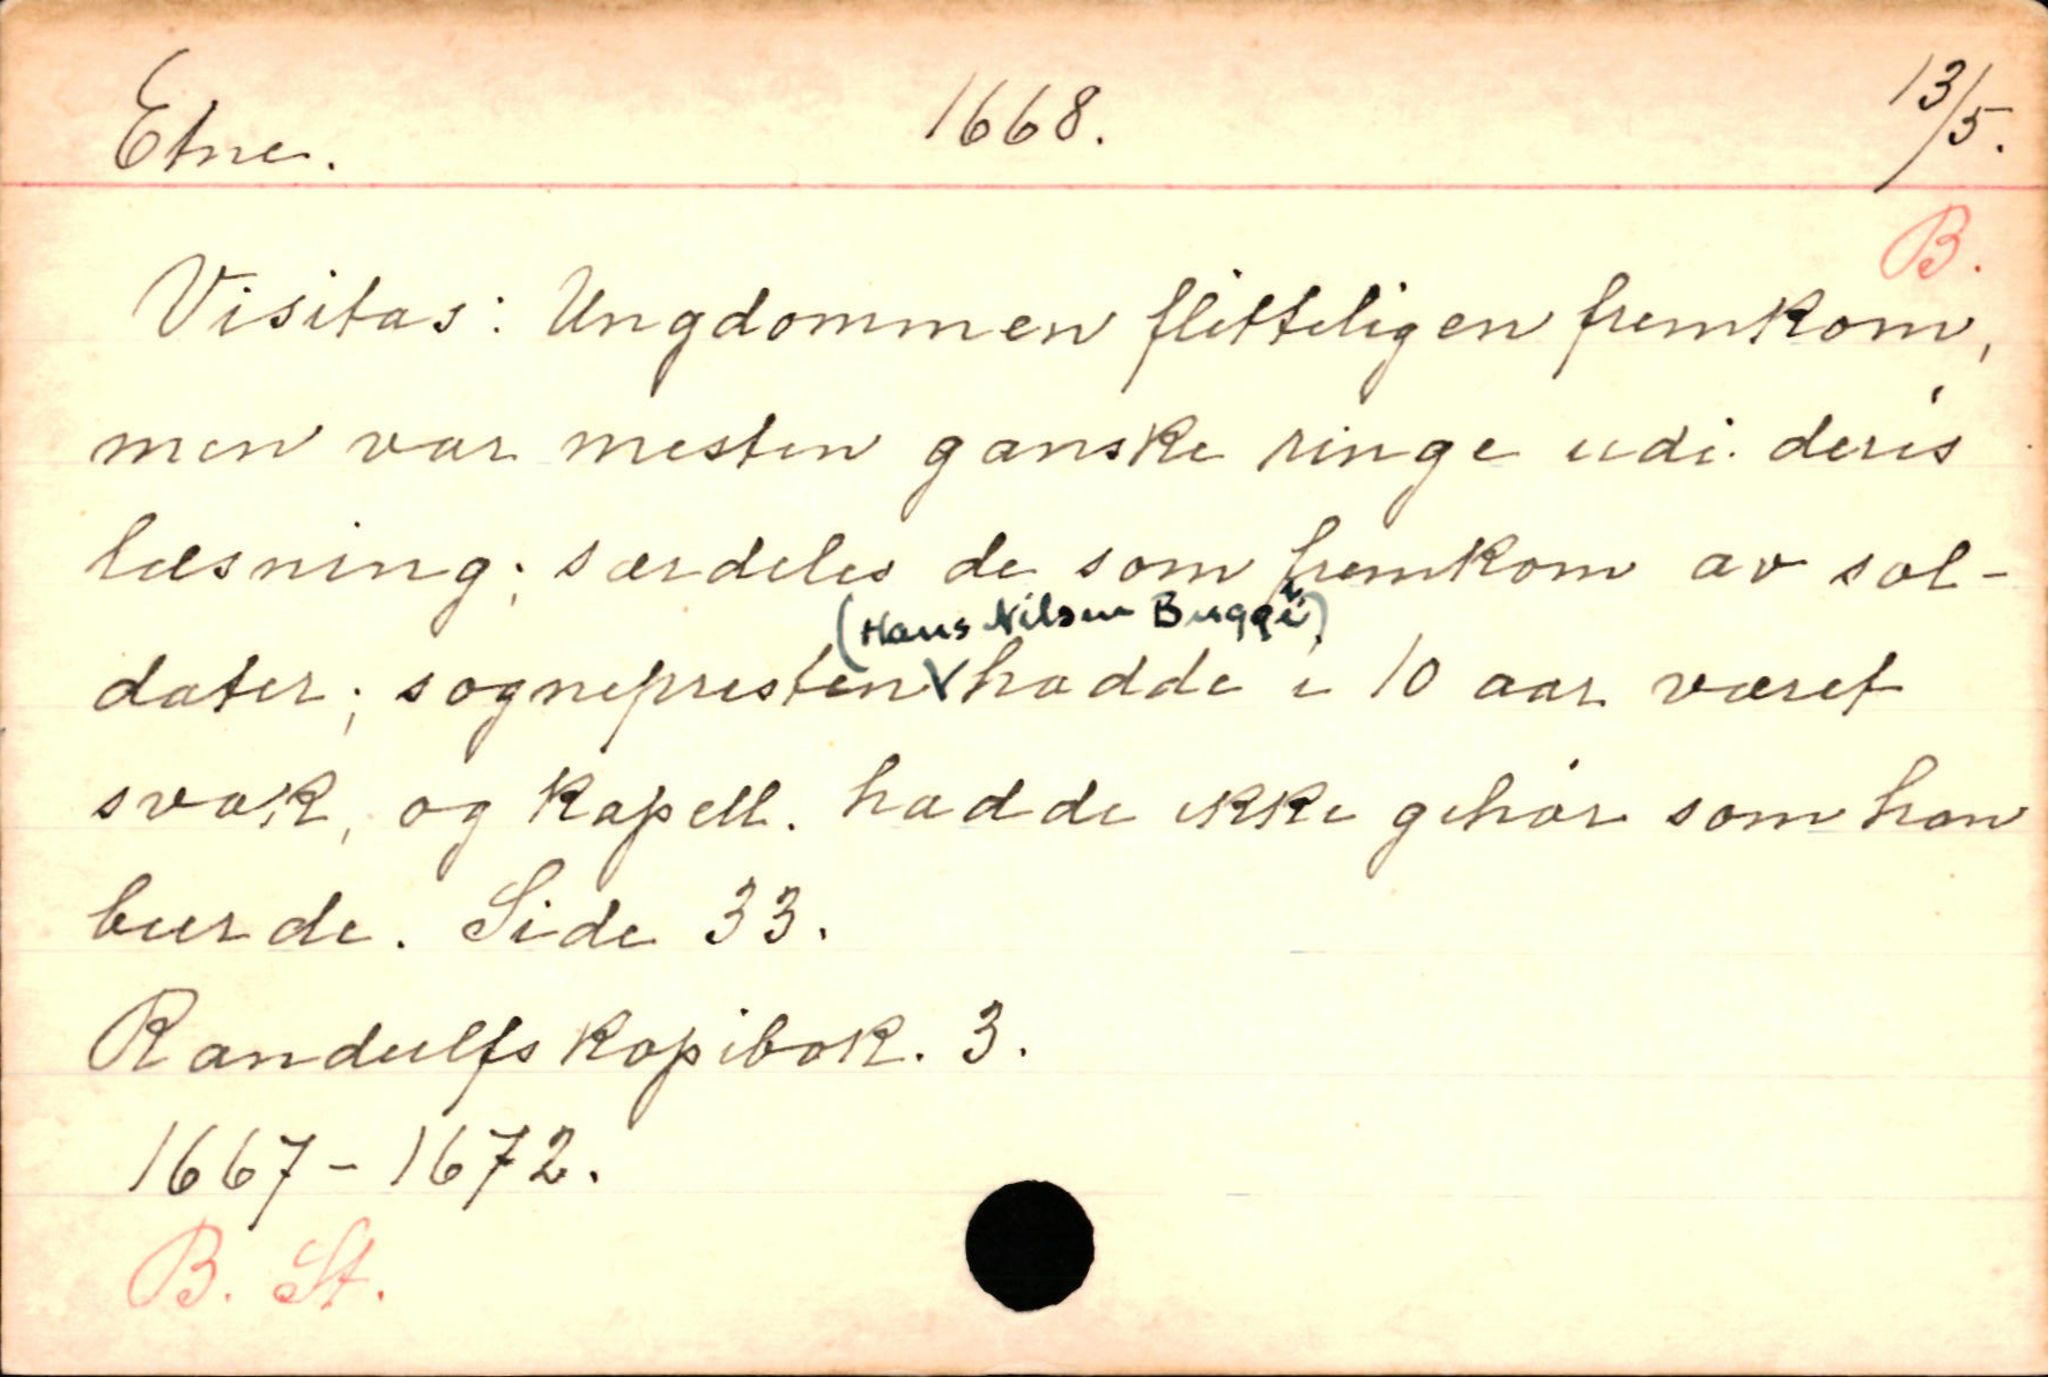 Etne. 1668. 13/5.
B.
Visitas: Ungdommen flitteligen fremkom,
men var mesten ganske ringe udi deris
læsning; særdeles de som fremkom av sol-
(Hans Nilsen Bugge)
dater; sognepresten hadde i 10 aar været
svak, og kapell. hadde ikke gehør som han
burde. Side 33.
Randulfs kopibok. 3.
1667-1672.
B. St.